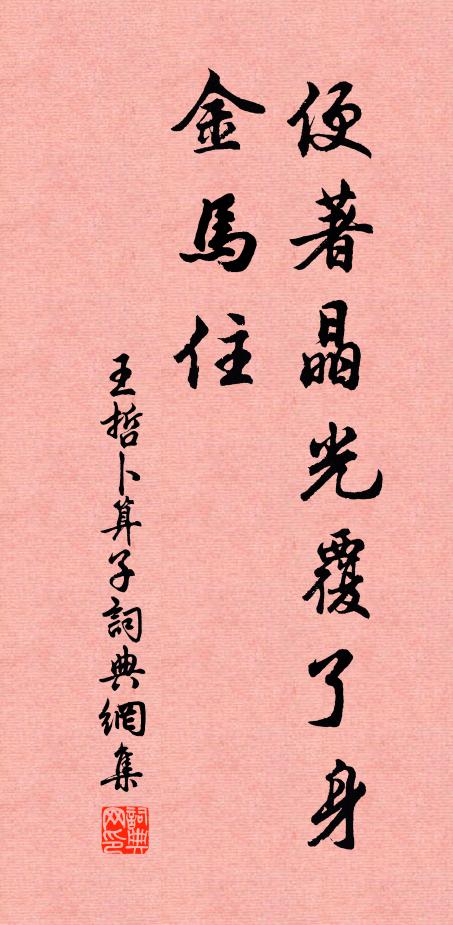 便著晶光覆了身
金馬住
王哲卜算子詞典網集
詞典网印